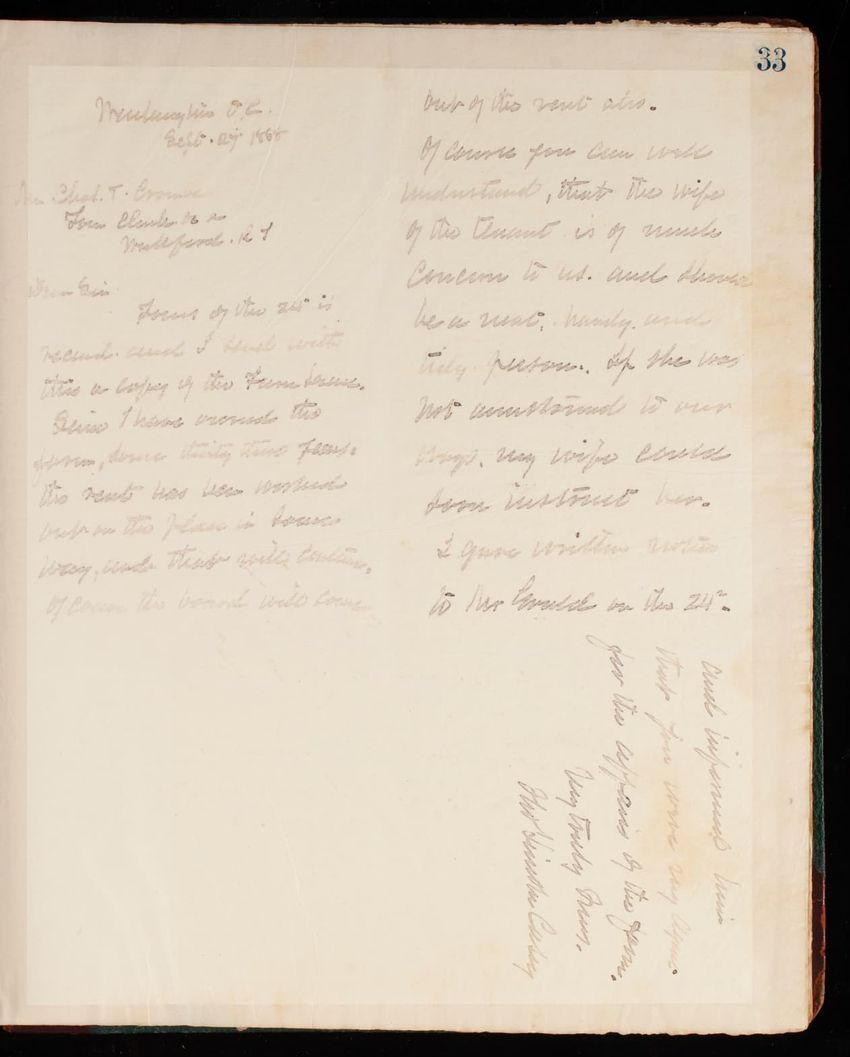 33
Washington D.C.
Sept. 27 1888
Mr. Chas. T. Crombe
Town Clerk &c
Wickford. R I
Dear Sir
Yours of the 24th is
recevd. and I send with
this a copy of the Farm Lease.
Since I have owned the
farm, some thirty three years.
the rent has been worked
out on the place in some
way, and that will continue.
Of course the board will come
out of the rent also.
Of course you can well
understand, that the wife
of the tenant is of much
concern to us. and should
be a neat, handy, and
tidy person. If she was
not accustomed to our
ways, my wife could
soon instruct her.
I gave written notice
to Mr Gould on the 24th.
and informed him
that you were my agent
for the affairs of the farm.
Very truly Yours.
Thos Lincoln Casey